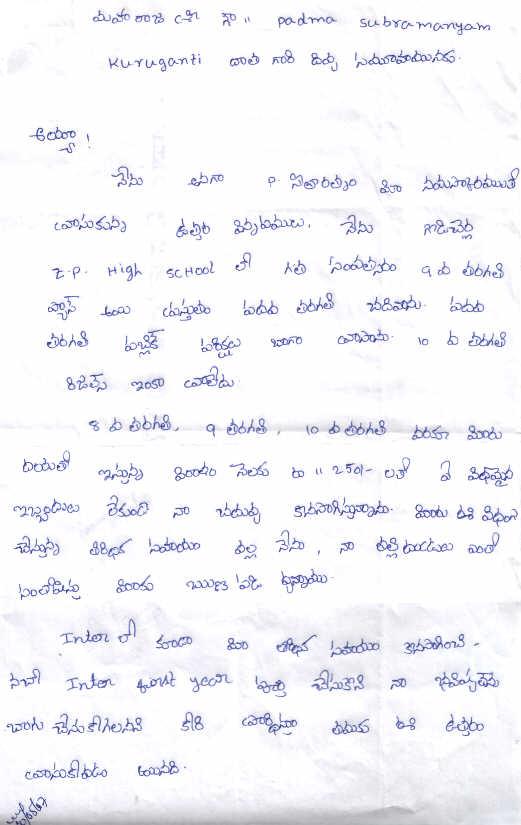 మహారాజ శ్రీ గౌ॥ padma subramanyam
Kuruganti దాత గారి దివ్య సముఖమునకు.
అయ్యా!
నేను అనగా P. సీతారత్నం మీకు నమస్కారములతో
వ్రాసుకున్న ఉత్తర విన్నపములు. నేను గాడిచెర్ల
Z.P. High SCHOOL లో గత సంవత్సరం 9 వ తరగతి
ప్యాస్ అయి ప్రస్తుతం పదవ తరగతి చదివాను. పదవ
తరగతి పబ్లిక్ పరీక్షలు బాగా వ్రాసాను. 10 వ తరగతి
రిజల్ట్స్ ఇంకా రాలేదు.
8 వ తరగతి, 9 తరగతి, 10 వ తరగతి వరకూ మీరు
దయతో ఇస్తున్న నెలకు రూ॥ 250/- లతో ఏ విధమైన
ఇబ్బందులు లేకుండా నా చదువు కొనసాగిస్తున్నాను. మీరు ఈ విధంగా
చేస్తున్న ఆర్థిక సహాయం వల్ల నేను, నా తల్లిదండ్రులు ఎంతో
సంతోషిస్తూ మీకు ఋణ పడి ఉన్నాము.
Inter లో కూడా మీ ఆర్థిక సహాయం కొనసాగించి -
నచో Inter first year పూర్తి చేసుకొని నా భవిష్యత్తును
బాగు చేసుకోగలనని కోరి ప్రార్థిస్తూ తమకు ఈ ఉత్తరం
వ్రాసుకోవడం అయినది.